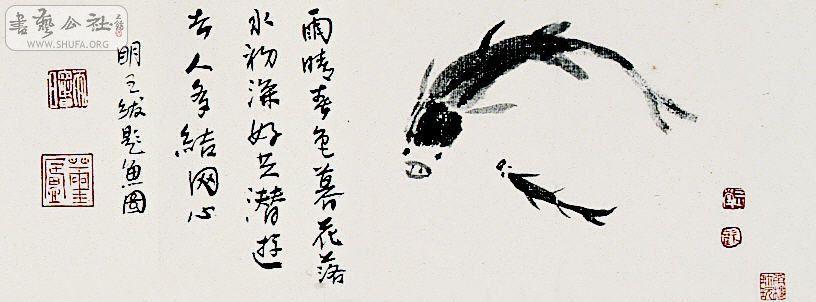 雨晴春色暮花落
水初深好共潛遊
去人多結网心
明王紱題魚圖
書藝公社
WWW.SHUFA.ORG